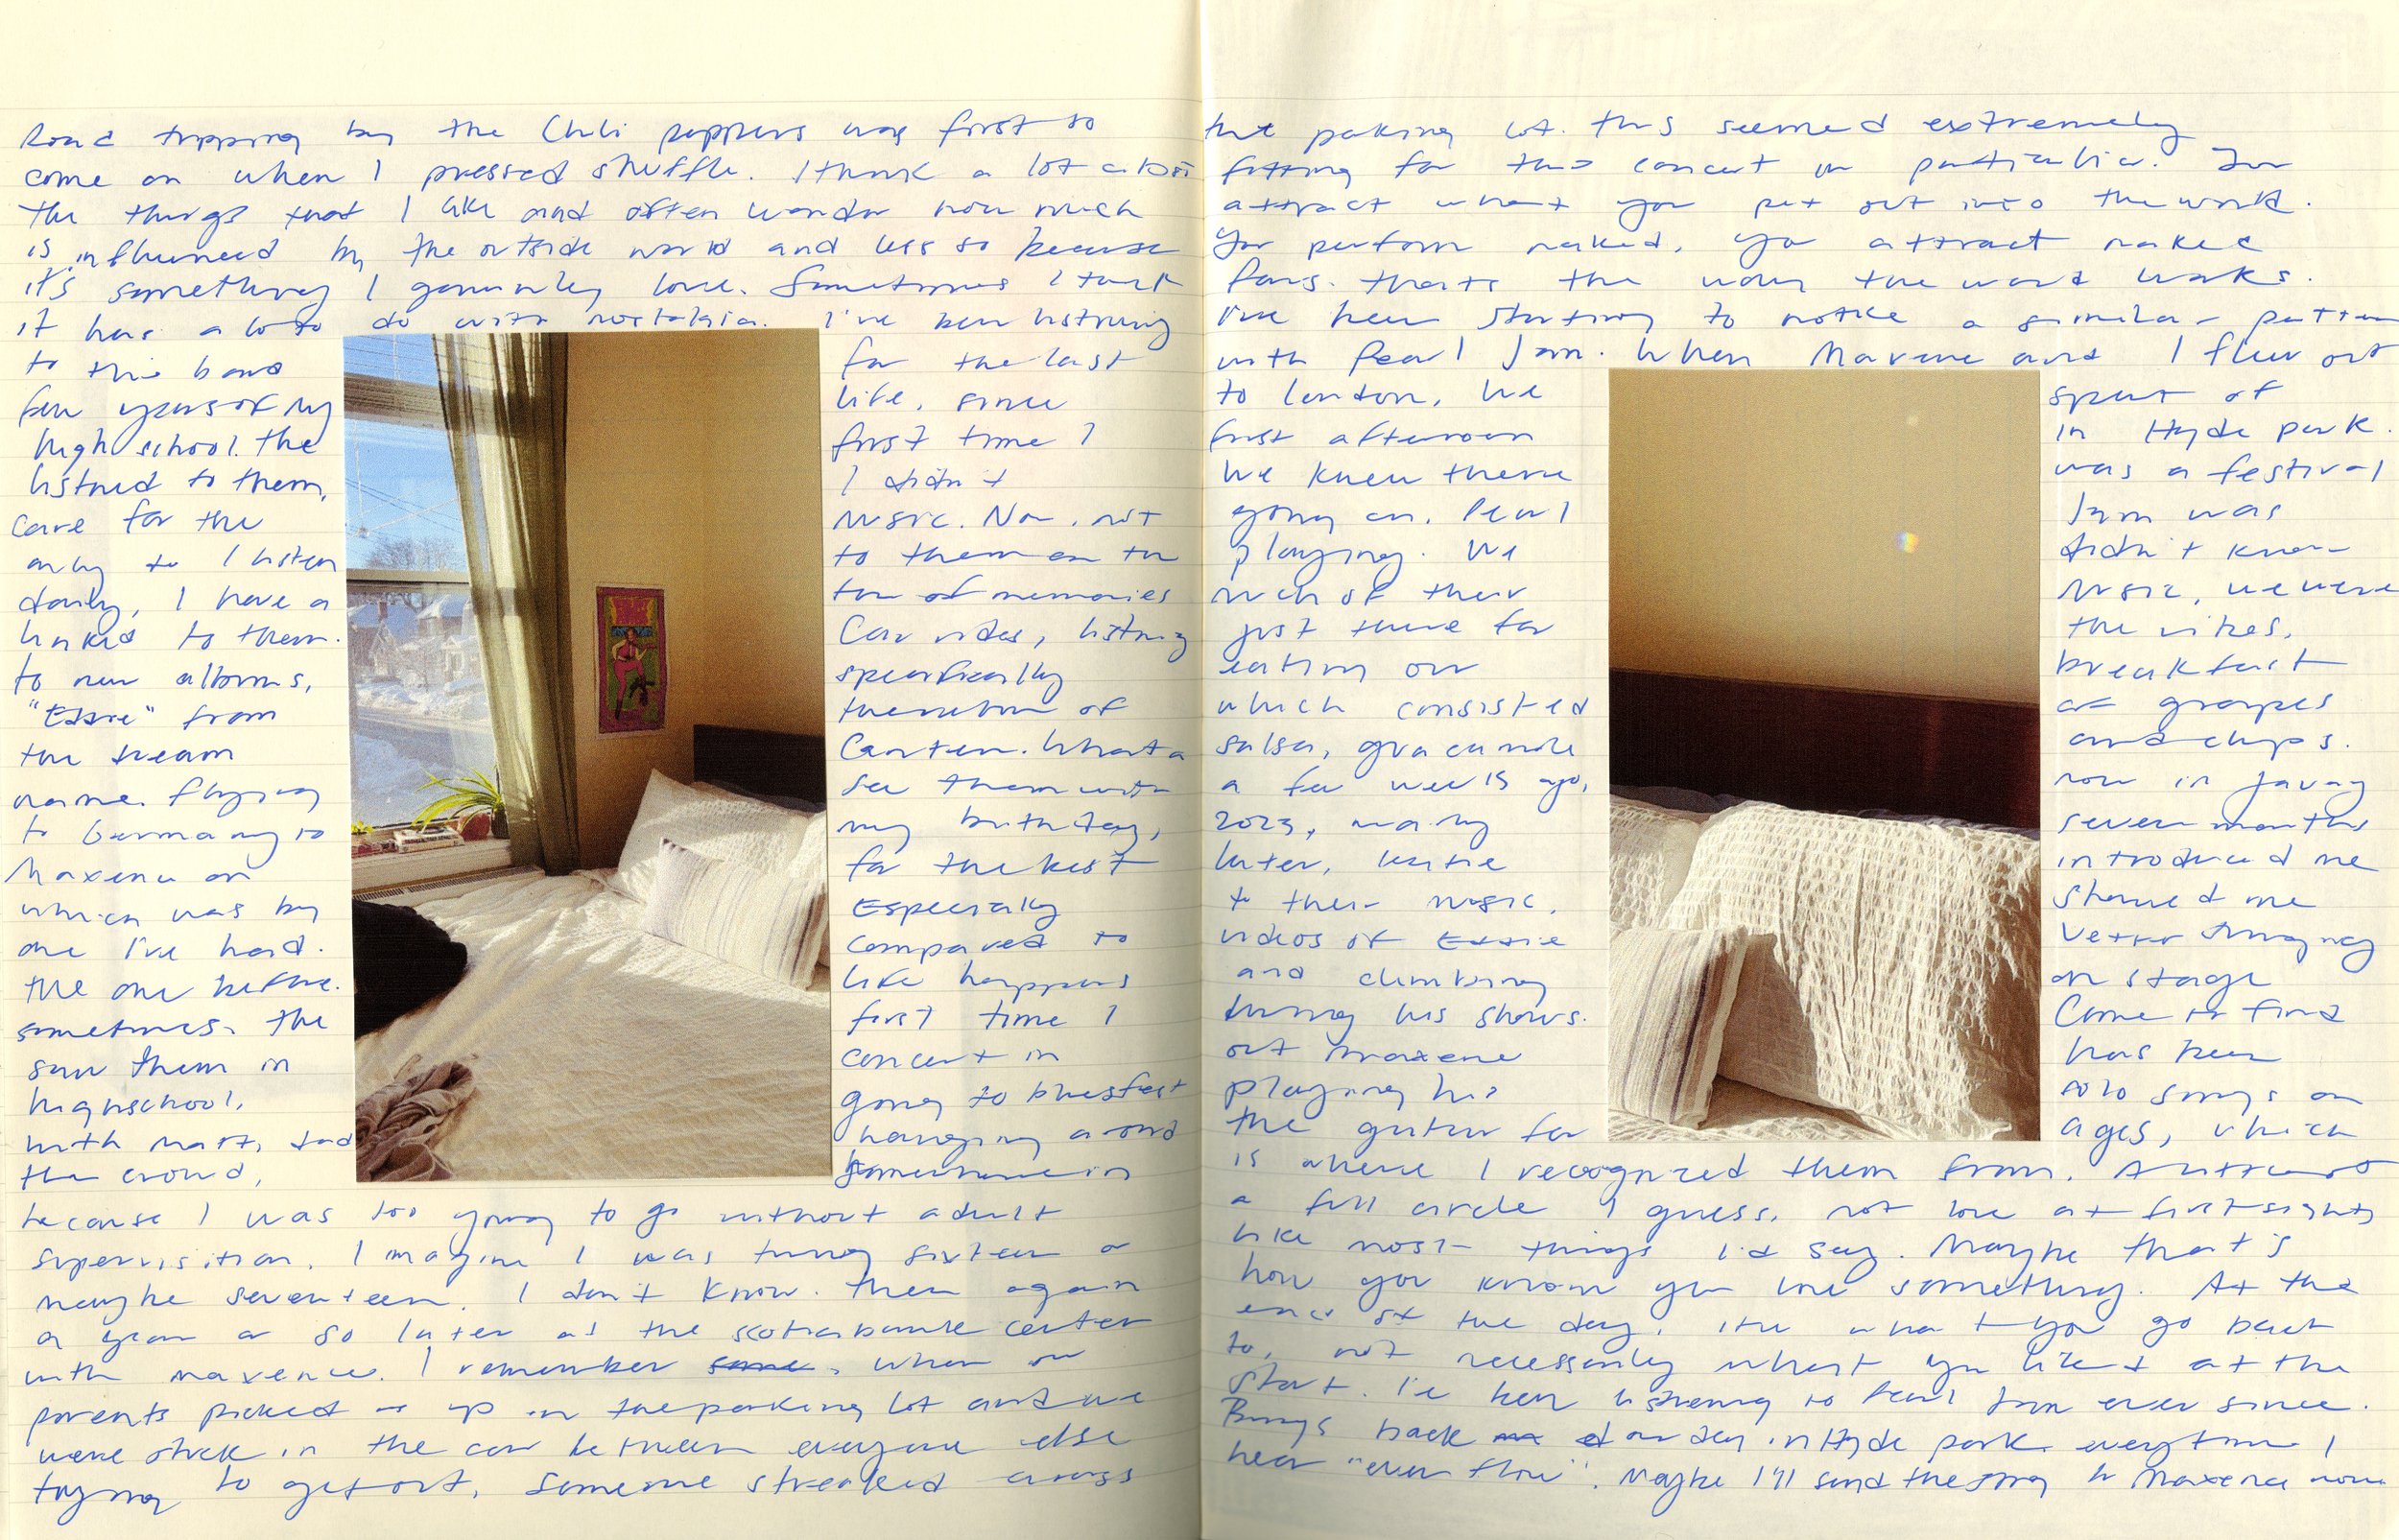 Road tripping by the Chili peppers was first to
come on when I pressed shuffle. I think a lot about
the things that I like and often wonder how much
is influenced by the outside world and less so because
it's something I genuinely love. Sometimes I think
it has a lot to do with nostalgia. I've been listening
to this band for the last
few years of my life, since
high school. the first time I
listned to them, I didn't
care for the music. Now, not
only do I listen to them on the
daily, I have a ton of memories
linked to them. Car rides, listning
to new albums, specifically
"Eddie" from the return of
the dream Canteen. What a
name. flying
to Germany to see them with
Maxence on my birthday,
which was by far the best
one I've had. Especially
compared to
the one before. life happens
sometimes. the first time I
saw them in concert in
highschool, going to bluesfest
with matt, dad hanging around
somewhere in
the crowd,
because I was too young to go without adult
supervisition. I imagine I was turning sixteen or
maybe seventeen. I don't know. then again
a year or so later at the scotiabank center
with maxence. I remember some, when our
parents picked us up in the parking lot and we
were stuck in the car between everyone else
trying to get out, someone streaked across
the paking lot. this seemed extremely
fitting for this concert in particular. You
attract what you put out into the world.
You perform naked, you attract naked
fans. thats the way the world works.
I've been starting to notice a similar pattern
with Pearl Jam. When Maxence and I flew out
to london, we spent of
first afternoon in Hyde park.
We knew there was a festival
going on, Pearl Jam was
playing. We didn't know
much of their music, we were
just there for the vibes,
eating our breakfast
which consisted of grapes
salsa, guacamole and chips.
a few weeks ago, now in janury
2023, nearly seven months
later, introduced me
to their music. showed me
videos of Eddie Vetter singing
and climbing on stage
during his shows. Come to find
out maxence has been
playing his solo songs on
the guitar for ages, which
is where I recognized them from. A
a full circle I guess, not love at first sight,
like most things I'd say. Maybe that's
how you know you love something. At the
end of the day, its what you go back
to, not necessarily what you liked at the
start. I've been listening to Pearl Jam ever since.
Brings back our day in Hyde park everytime I
hear "even flow". Maybe I'll send the song to Maxence now